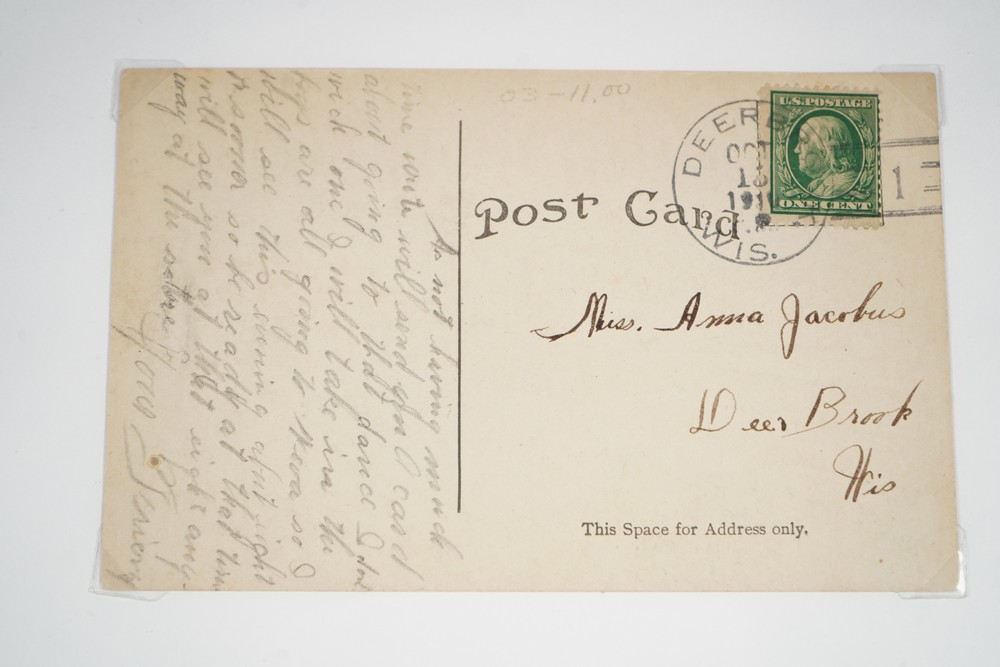 03-11.00
U.S. POSTAGE
ONE CENT
DEERB
OCT
18
191
WIS.
1
Post Card
Miss. Anna Jacobus
Deer Brook
Wis
This Space for Address only.
As not having much
time will send you a card
about going to that dance I
which one I will take in the
boys are all going to so I
Will see this evening about eight
or sooner so be ready at that time
will see you at that eight any-
way at the store
Your